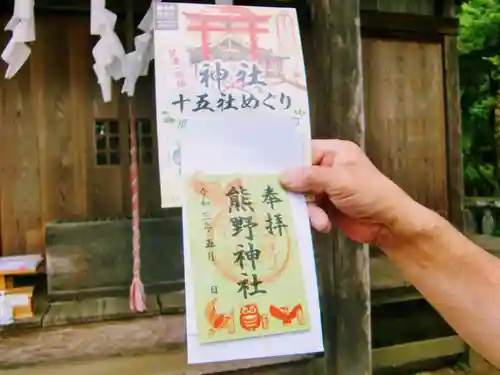 神社
十五社めぐり
奉拝
熊野神社
令和二年五月 日